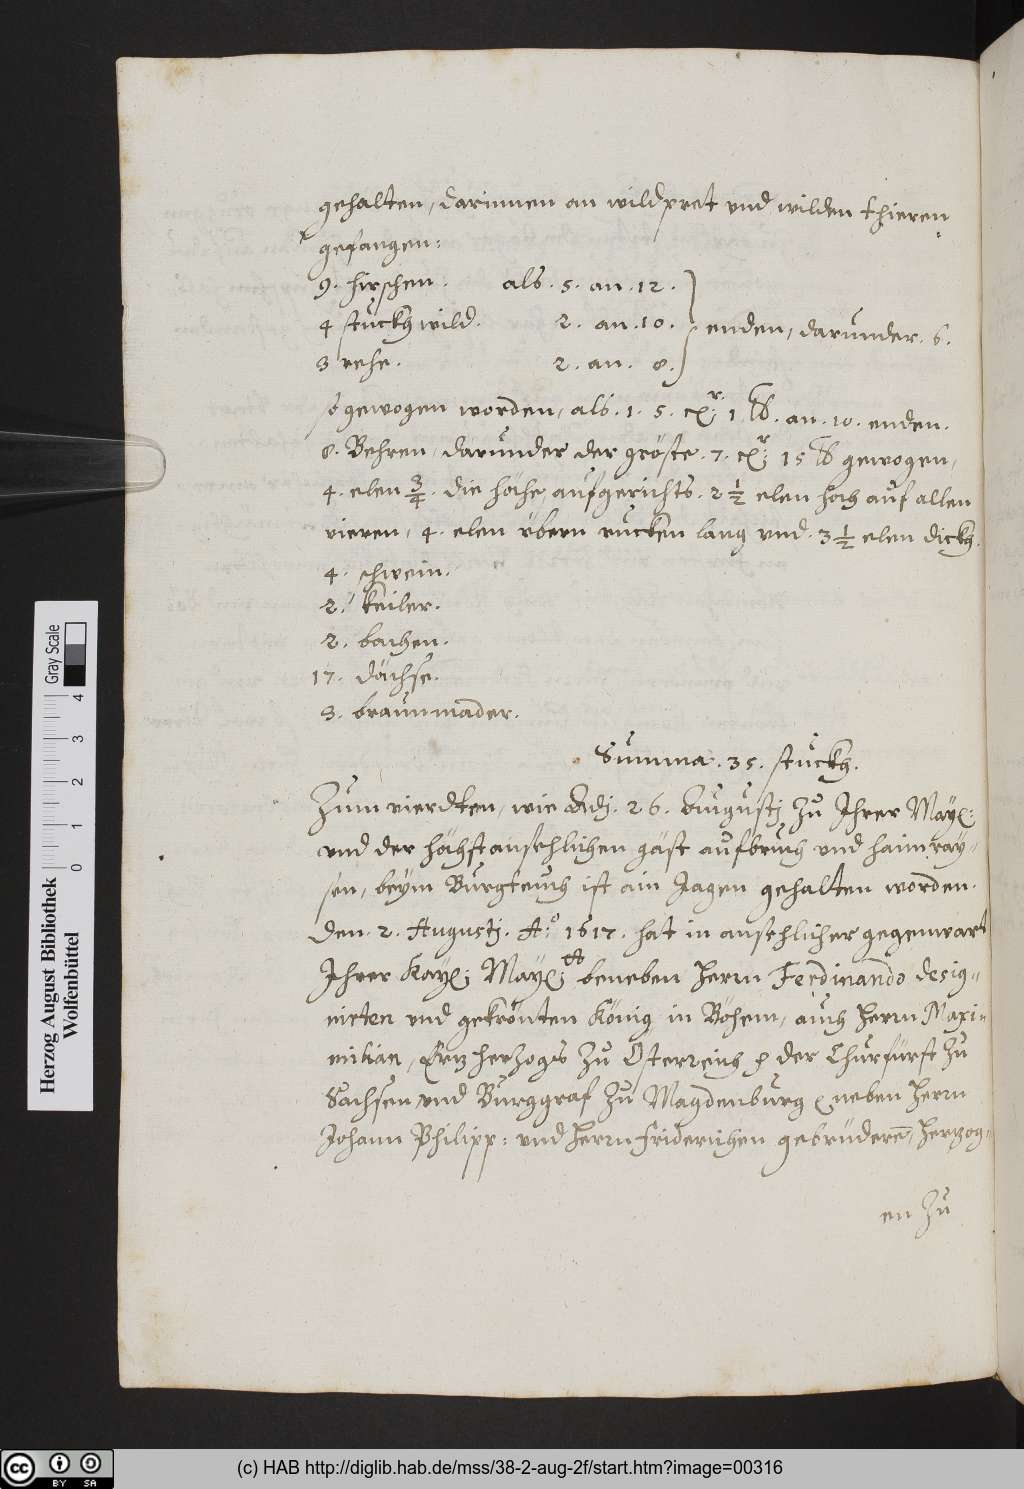 gehalten, darinnen an wildpret und wilden thieren
gefangen:
9. hirschen. als. 5. an. 12.
4 stuckh wild. 2. an. 10. enden, darunder. 6.
3 rehe. 2. an. 8.
so gewogen worden, als. 1. 5. 1 ℔. an. 10. enden.
8. Behren, darunder der gröste. 7. 15 ℔ gewogen,
4. elen 3/4. die höhe aufgerichts. 2 1/2 elen hoh auf allen
vieren, 4. elen übern rucken lang und. 3 1/2 elen dickh.
4. schwein.
2. keiler.
2. bachen.
17. dächse.
3. braunmader.
Summa. 35. stuckh.
Zum vierdten, wie Adj. 26. Augustj zu Ihrer May:
und der höchstansehlichen gäst aufbruch und haimray-
sen, beym Burgkeuch ist ain Jagen gehalten worden.
Den. 2. Augustj. Aº: 1617. hat in ansehlicher gegenwart
Ihrer Kay: May: beneben Herrn Ferdinando desig-
nirten und gekrönten König in Böhem, auch Herrn Maxi-
milian, Ertzhertzogs zu Osterreich der Churfürst zu
Sachsen und Burggraf zu Magdenburg neben Herrn
Johann Philipp: und Herrn Friderichen gebrüdern, hertzog-
en zu
Herzog August Bibliothek
Wolfenbüttel
Gray Scale
0 1 2 3 4
cc BY SA
(c) HAB http://diglib.hab.de/mss/38-2-aug-2f/start.htm?image=00316